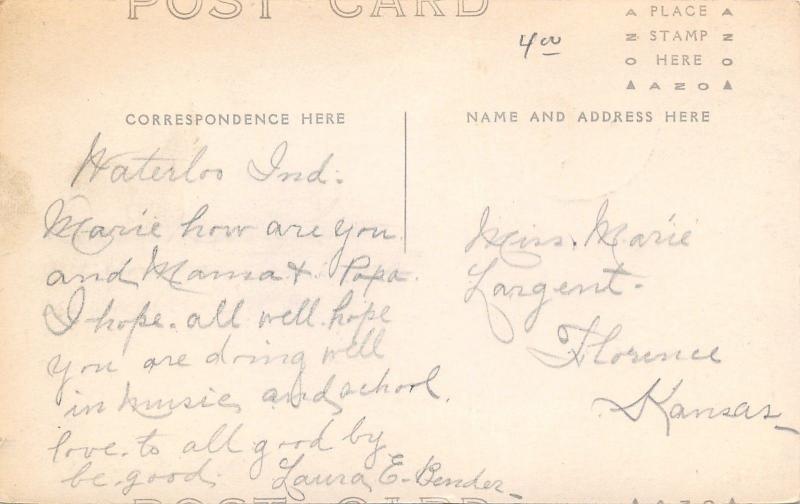 POST CARD
4 00
A PLACE A
Z STAMP Z
O HERE O
▲ AZO ▲
CORRESPONDENCE HERE
NAME AND ADDRESS HERE
Waterloo Ind.
Marie how are you
and Mama & Papa.
I hope. all well. hope
you are doing well
in music, and school.
love. to all good by
be. good. Laura E. Bender
Miss. Marie
Largent.
Florence
Kansas
POST CARD
▲ AZO ▲